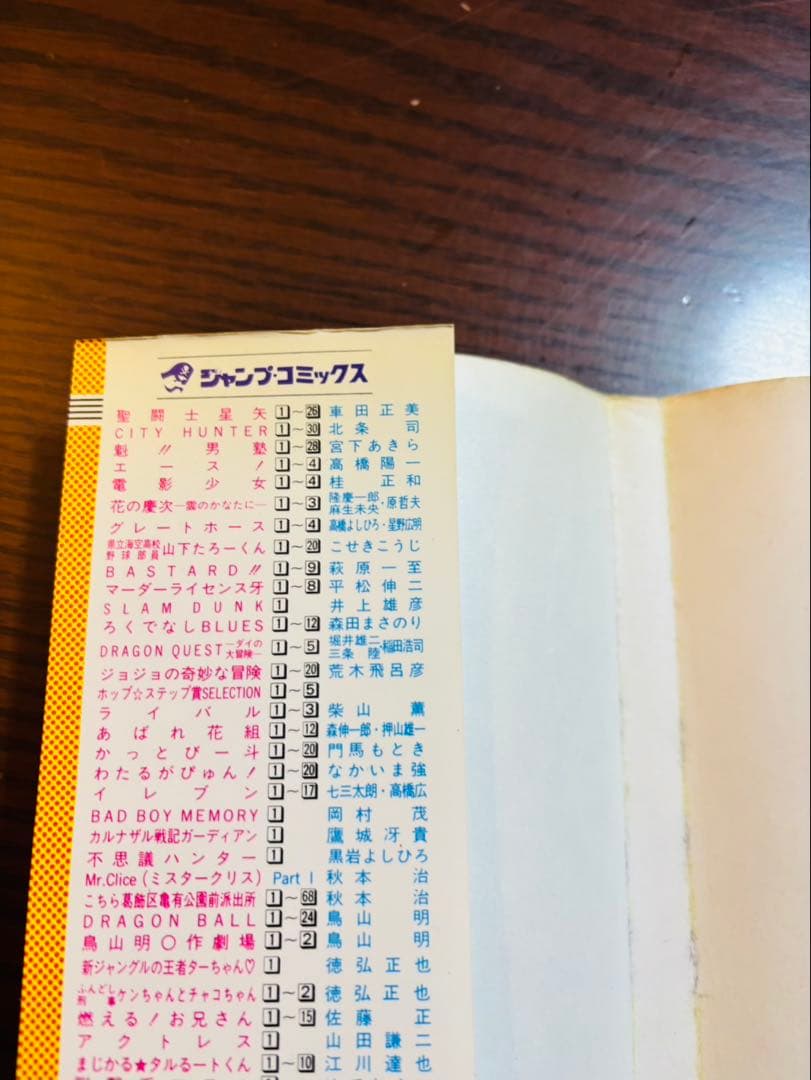 ジャンプ・コミックス
聖闘士星矢 1～26 車田正美
CITY HUNTER 1～30 北条司
魁!!男塾 1～28 宮下あきら
エース! 1～4 高橋陽一
電影少女 1～4 桂正和
花の慶次―雲のかなたに― 1～3 隆慶一郎 麻生未央・原哲夫
グレートホース 1～4 高橋よしひろ・星野広明
県立海空高校野球部員山下たろーくん 1～20 こせきこうじ
BASTARD!! 1～9 萩原一至
マーダーライセンス牙 1～8 平松伸二
SLAM DUNK 1 井上雄彦
ろくでなしBLUES 1～12 森田まさのり
DRAGON QUEST―ダイの大冒険― 1～5 堀井雄二 三条陸・稲田浩司
ジョジョの奇妙な冒険 1～20 荒木飛呂彦
ホップ☆ステップ賞SELECTION 1～5
ライバル 1～3 柴山薫
あばれ花組 1～12 森伸一郎・押山雄一
かっとび一斗 1～20 門馬もとき
わたるがぴゅん! 1～20 なかいま強
イレブン 1～17 七三太朗・高橋広
BAD BOY MEMORY 1 岡村茂
カルナザル戦記ガーディアン 1 鷹城冴貴
不思議ハンター 1 黒岩よしひろ
Mr.Clice(ミスタークリス) Part I 秋本治
こちら葛飾区亀有公園前派出所 1～68 秋本治
DRAGON BALL 1～24 鳥山明
鳥山明○作劇場 1～2 鳥山明
新ジャングルの王者ターちゃん♡ 1 徳弘正也
ふんどし刑事ケンちゃんとチャコちゃん 1～2 徳弘正也
燃える!お兄さん 1～15 佐藤正
アクトレス 1 山田謙二
まじかる★タルるートくん 1～10 江川達也